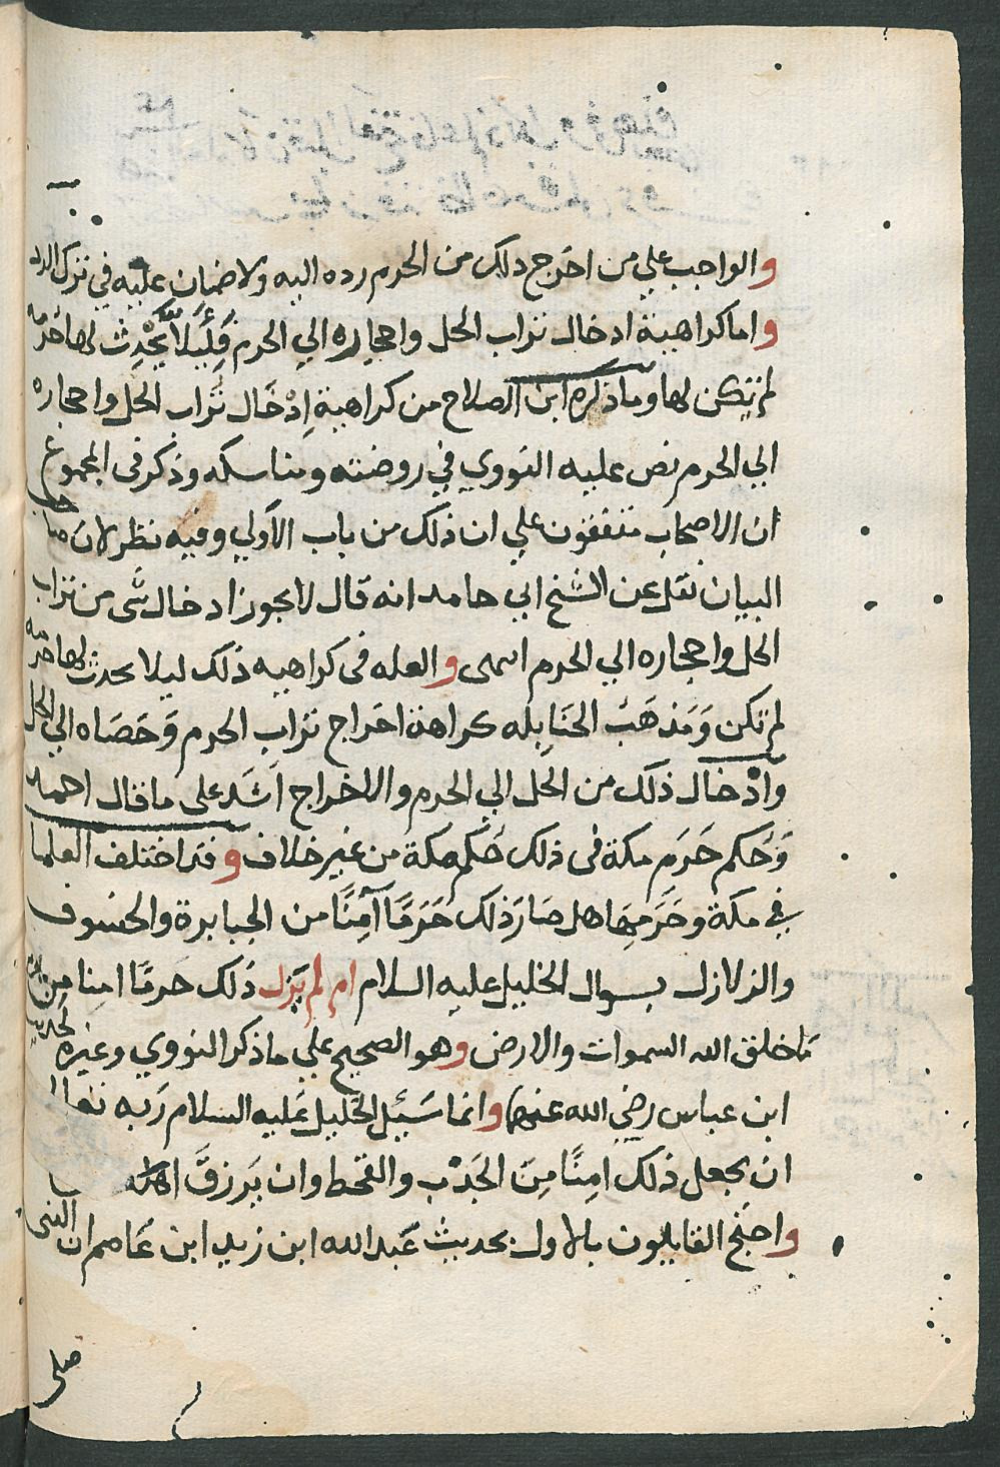 والواجب علي من اخرج ذلك من الحرم رده اليه ولا ضمان عليه في ترك الرد
واما كراهية ادخال تراب الحل واحجاره الي الحرم فَلِئَلاَّ يُحْدِث لها حُرمة
لم تكن لها وما ذكره ابن الصلاح من كراهية اِدْخَال تُراب الحل واحجاره
الي الحرم نص عليه النووي في روضته ومناسكه وذكر فى المجموع
ان الاصحاب متفقون علي ان ذلك من باب الاَولي وفيه نظر لان صاحب
البيان نقل عن الشيخ ابي حامد انه قال لا يجوز ادخال شى من تراب
الحل واحجاره الي الحرم انتهى والعله فى كراهيه ذلك ليلا يحدث لها حرمه
لم تكن وَمَذهَبُ الحَنَابِله كراهة اخراج تراب الحرم وَحَصَاه الي الحل
وادْخال ذلك من الحل الي الحرم والاخراج اَشَد على ما قال احمد
وَحُكم حَرَم مكة فى ذلك حُكم مكة من غير خلاف وقد اختلف العلما
في مكة وحَرَمِهَا هل صَارَ ذلك حَرَمًا آمِنًا من الجبابرة والخسوف
والزلازل بسوال الخليل عليه السلام ام لم يَزل ذلك حرمًا امنا من
مَا خلق الله السموات والارض وهو الصحيح علي ما ذكر النووي وغيره لحديث
ابن عباس رضي الله عنهما وانما سَئَل الخليل عَليه السلام رَبه تعالى
ان يجعل ذلك امِنًا مِنَ الجَدْب والقحط وان يَرزقَ اهله
واحتج القايلون بالاول بحديث عَبد الله ابن زيد ابن عَاصم ان النبى
صلى